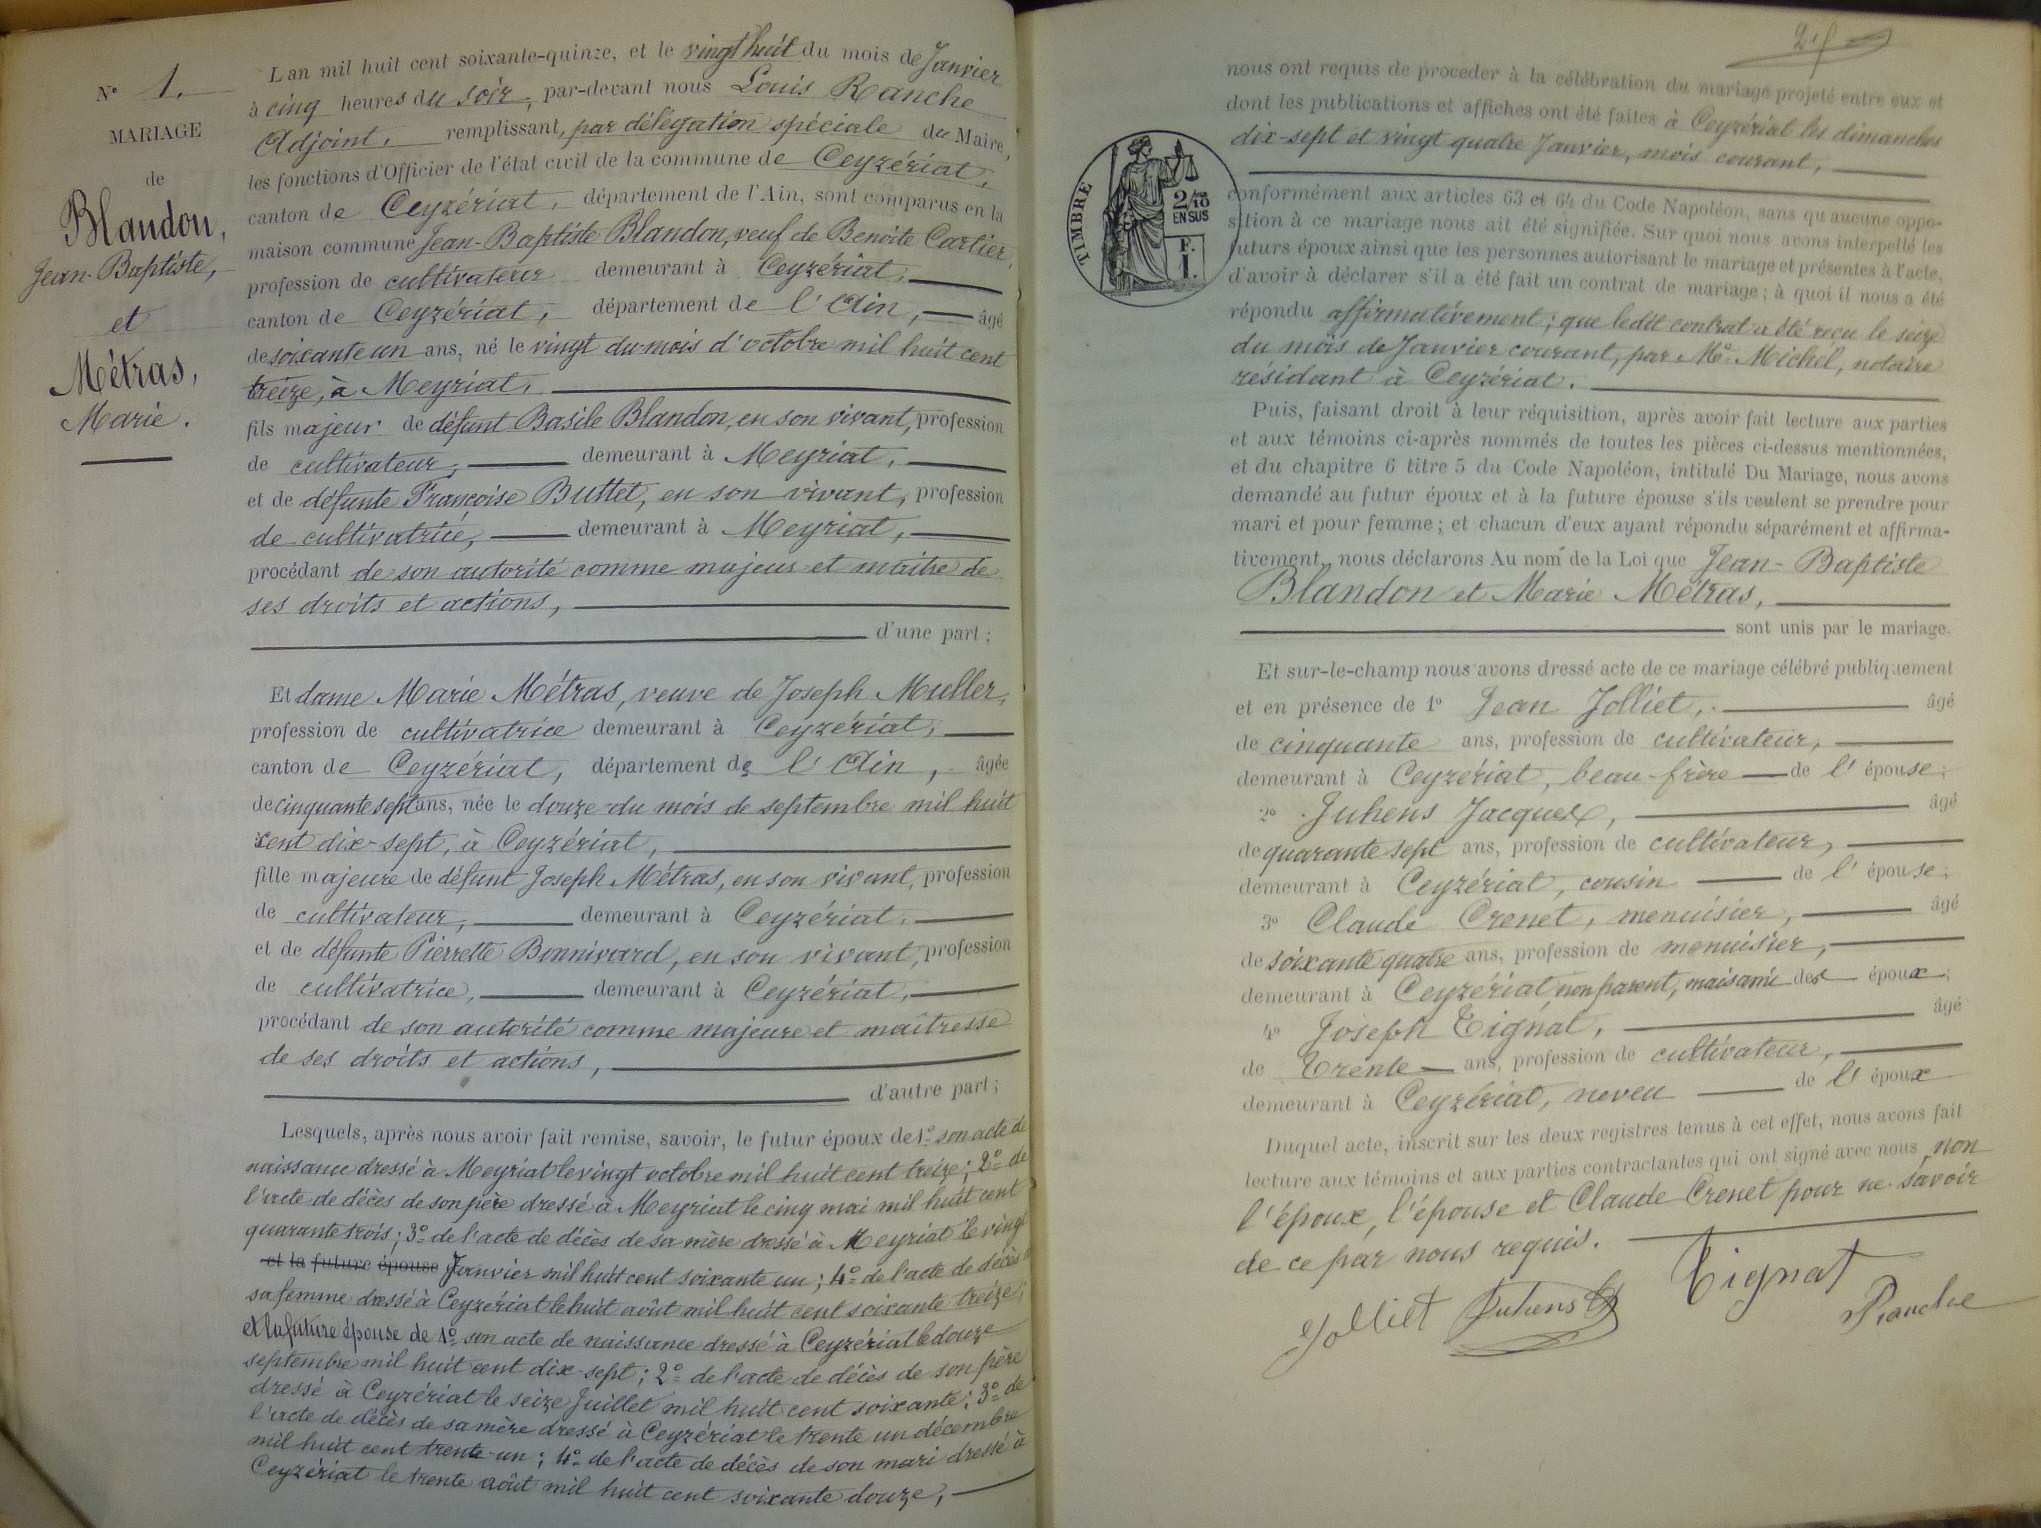 N° 1.
MARIAGE
de
Blandon,
Jean-Baptiste,
et
Métras,
Marie.
L'an mil huit cent soixante-quinze, et le vingt huit du mois de Janvier
à cinq heures du soir, par-devant nous Louis Ranche
Adjoint, remplissant, par délégation spéciale du Maire,
les fonctions d'Officier de l'état civil de la commune de Ceyzériat,
canton de Ceyzériat, département de l'Ain, sont comparus en la
maison commune Jean-Baptiste Blandon, veuf de Benoite Cartier,
profession de cultivateur demeurant à Ceyzériat,
canton de Ceyzériat, département de l'Ain, âgé
de soixante un ans, né le vingt du mois d'octobre mil huit cent
treize, à Meyriat,
fils majeur de défunt Basile Blandon, en son vivant, profession
de cultivateur, demeurant à Meyriat,
et de défunte Françoise Buttet, en son vivant, profession
de cultivatrice, demeurant à Meyriat,
procédant de son autorité comme majeur et maître de
ses droits et actions,
d'une part;
Et dame Marie Métras, veuve de Joseph Muller,
profession de cultivatrice demeurant à Ceyzériat,
canton de Ceyzériat, département de l'Ain, âgée
de cinquante sept ans, née le douze du mois de septembre mil huit
cent dix-sept, à Ceyzériat,
fille majeure de défunt Joseph Métras, en son vivant, profession
de cultivateur, demeurant à Ceyzériat,
et de défunte Pierrette Bonnivard, en son vivant, profession
de cultivatrice, demeurant à Ceyzériat,
procédant de son autorité comme majeure et maîtresse
de ses droits et actions,
d'autre part;
Lesquels, après nous avoir fait remise, savoir, le futur époux de 1° son acte de
naissance dressé à Meyriat le vingt octobre mil huit cent treize; 2° de
l'acte de décès de son père dressé à Meyriat le cinq mai mil huit cent
quarante trois; 3° de l'acte de décès de sa mère dressé à Meyriat le vingt
et la future épouse Janvier mil huit cent soixante un; 4° de l'acte de décès de
sa femme dressé à Ceyzériat le huit août mil huit cent soixante treize;
et la future épouse de 1° son acte de naissance dressé à Ceyzériat le douze
septembre mil huit cent dix-sept; 2° de l'acte de décès de son père
dressé à Ceyzériat le seize Juillet mil huit cent soixante; 3° de
l'acte de décès de sa mère dressé à Ceyzériat le trente un décembre
mil huit cent trente-un; 4° de l'acte de décès de son mari dressé à
Ceyzériat le trente août mil huit cent soixante douze,
nous ont requis de procéder à la célébration du mariage projeté entre eux et
dont les publications et affiches ont été faites à Ceyzériat les dimanches
dix-sept et vingt quatre Janvier, mois courant,
TIMBRE
2/10
EN SUS
F.
1.
conformément aux articles 63 et 64 du Code Napoléon, sans qu'aucune oppo-
sition à ce mariage nous ait été signifiée. Sur quoi nous avons interpellé les
futurs époux ainsi que les personnes autorisant le mariage et présentes à l'acte,
d'avoir à déclarer s'il a été fait un contrat de mariage; à quoi il nous a été
répondu affirmativement; que ledit contrat a été reçu le seize
du mois de Janvier courant, par Me Michel, notaire
résidant à Ceyzériat.
Puis, faisant droit à leur réquisition, après avoir fait lecture aux parties
et aux témoins ci-après nommés de toutes les pièces ci-dessus mentionnées,
et du chapitre 6 titre 5 du Code Napoléon, intitulé Du Mariage, nous avons
demandé au futur époux et à la future épouse s'ils veulent se prendre pour
mari et pour femme; et chacun d'eux ayant répondu séparément et affirma-
tivement, nous déclarons Au nom de la Loi que Jean-Baptiste
Blandon et Marie Métras,
sont unis par le mariage.
Et sur-le-champ nous avons dressé acte de ce mariage célébré publiquement
et en présence de 1° Jean Jolliet, âgé
de cinquante ans, profession de cultivateur,
demeurant à Ceyzériat, beau-frère de l'épouse;
2° Juhens Jacques, âgé
de quarante sept ans, profession de cultivateur,
demeurant à Ceyzériat, cousin de l'épouse;
3° Claude Crenet, menuisier, âgé
de soixante quatre ans, profession de menuisier,
demeurant à Ceyzériat, non parent, mais ami des époux;
4° Joseph Tignat, âgé
de trente ans, profession de cultivateur,
demeurant à Ceyzériat, neveu de l'époux
Duquel acte, inscrit sur les deux registres tenus à cet effet, nous avons fait
lecture aux témoins et aux parties contractantes qui ont signé avec nous, non
l'époux, l'épouse et Claude Crenet pour ne savoir
de ce par nous requis.
Jolliet Juhens Tignat
Ranche